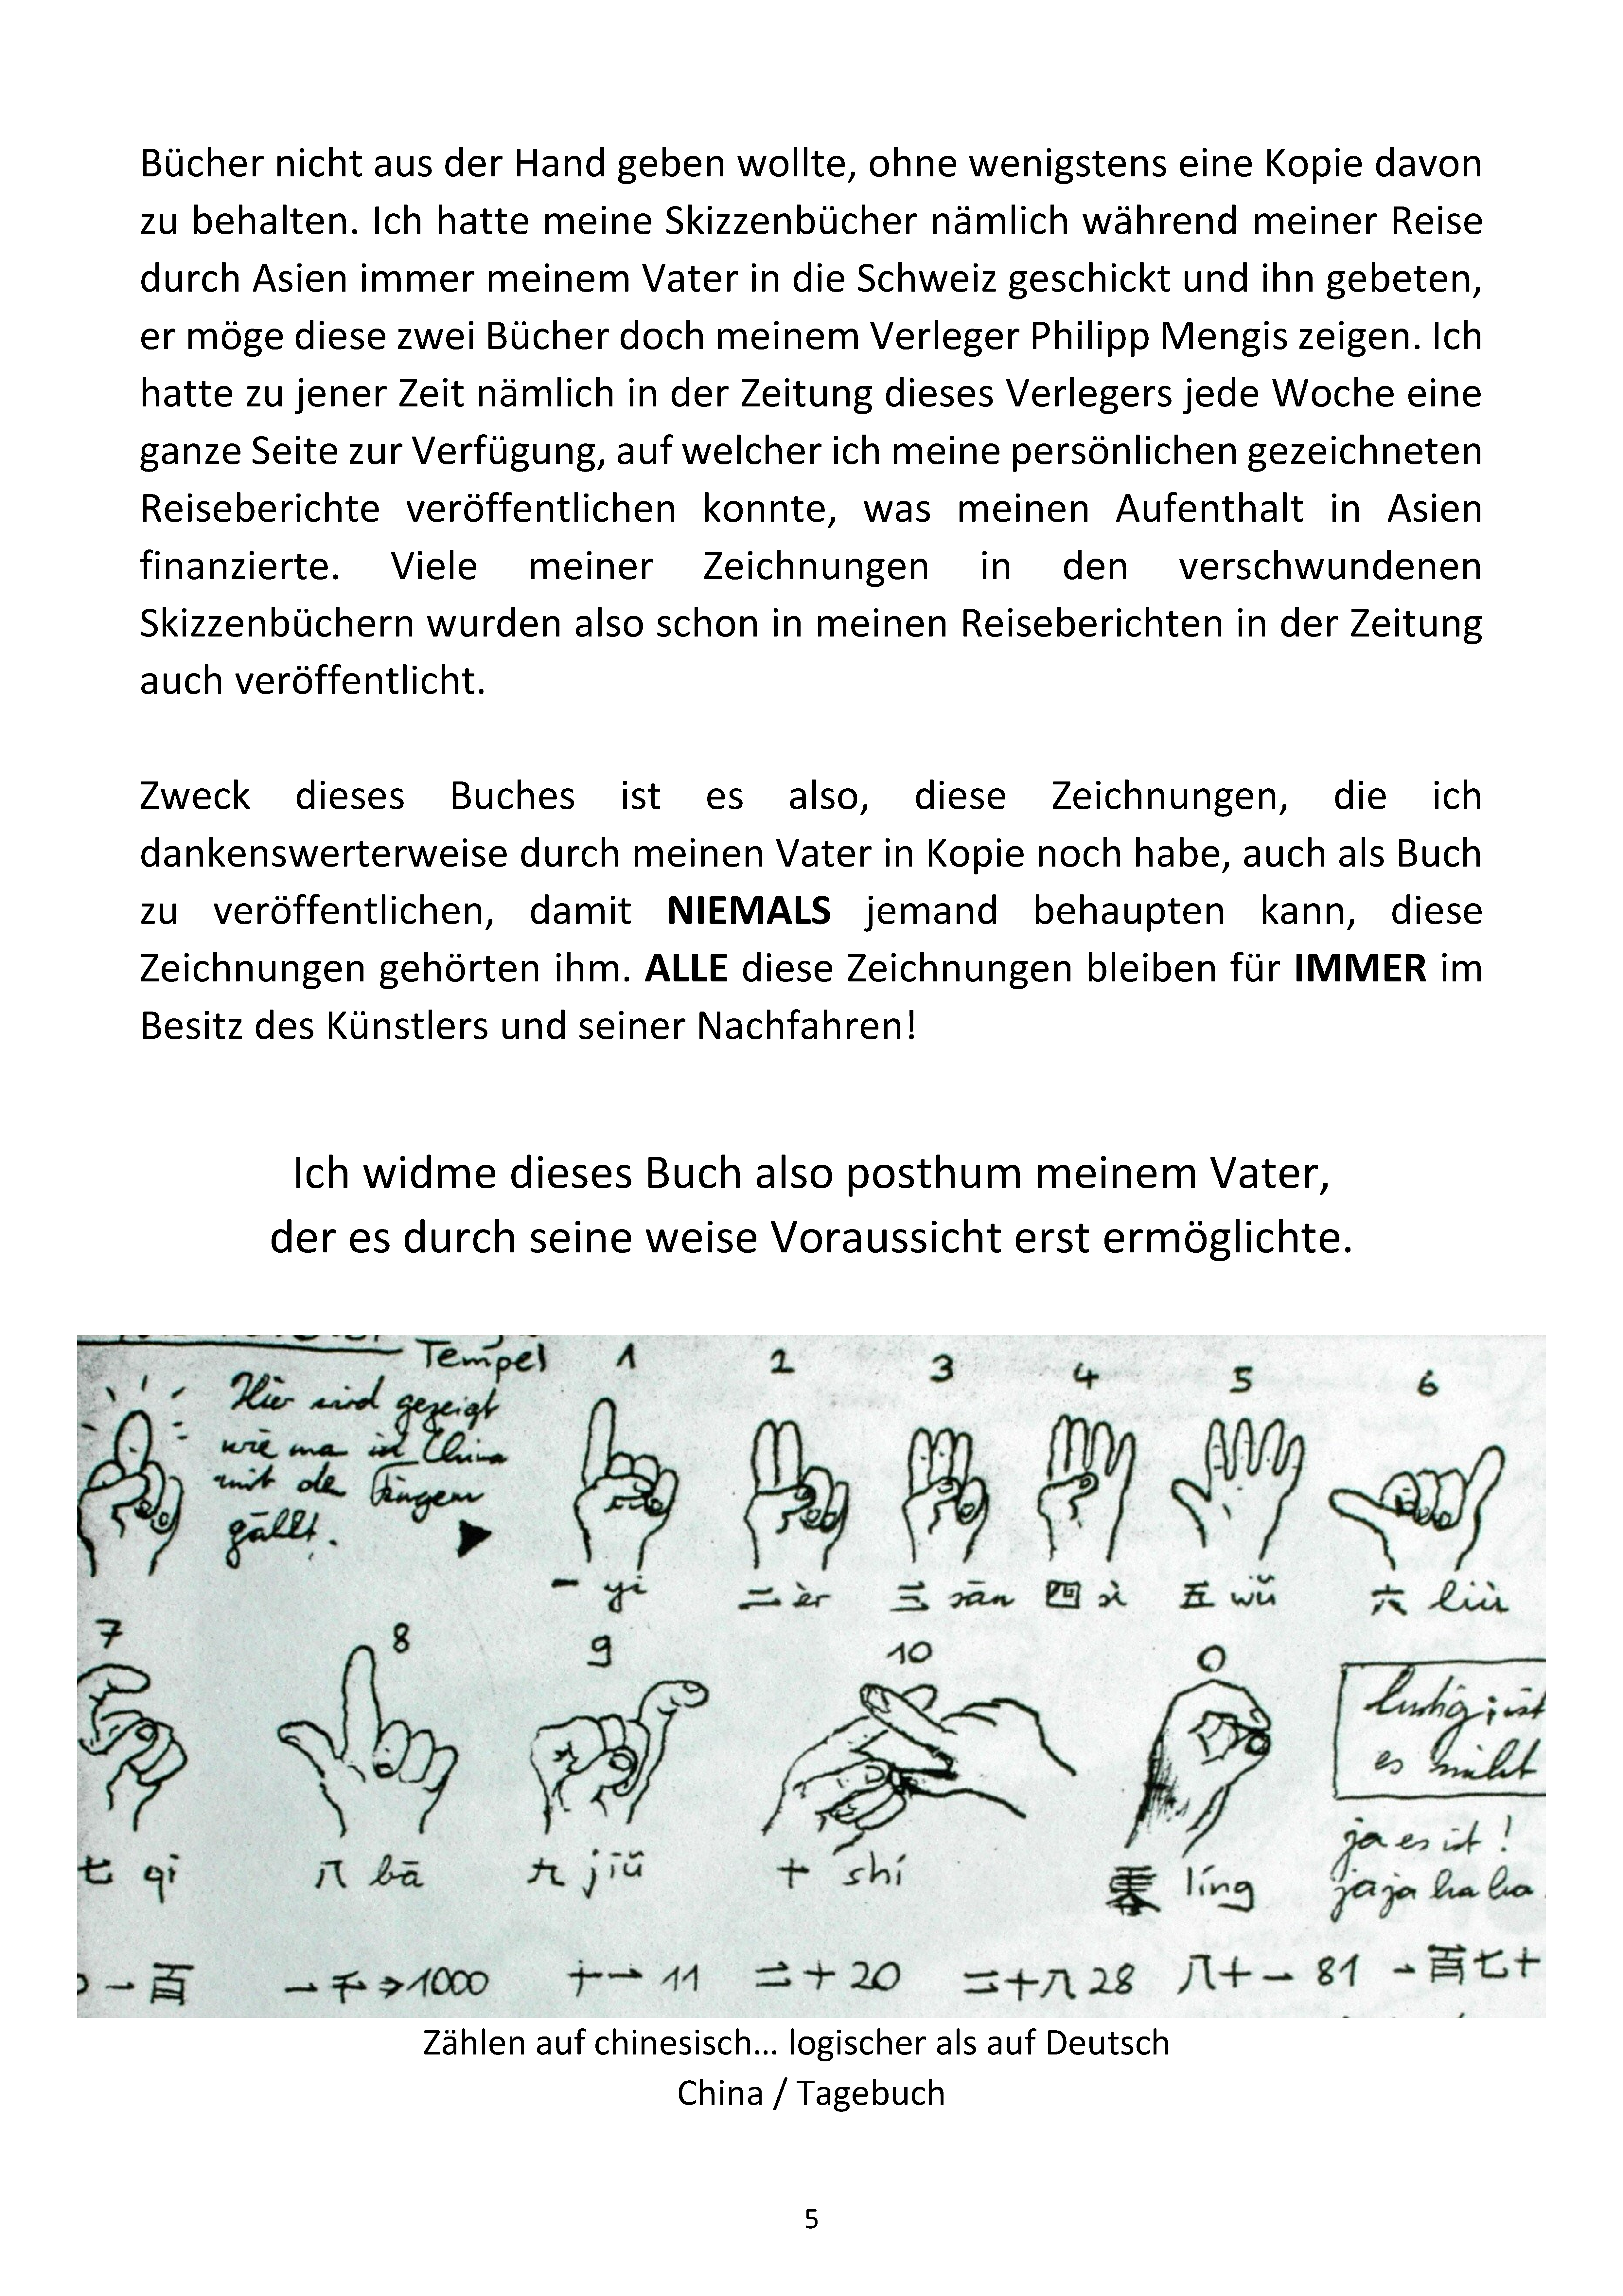 Bücher nicht aus der Hand geben wollte, ohne wenigstens eine Kopie davon
zu behalten. Ich hatte meine Skizzenbücher nämlich während meiner Reise
durch Asien immer meinem Vater in die Schweiz geschickt und ihn gebeten,
er möge diese zwei Bücher doch meinem Verleger Philipp Mengis zeigen. Ich
hatte zu jener Zeit nämlich in der Zeitung dieses Verlegers jede Woche eine
ganze Seite zur Verfügung, auf welcher ich meine persönlichen gezeichneten
Reiseberichte veröffentlichen konnte, was meinen Aufenthalt in Asien
finanzierte. Viele meiner Zeichnungen in den verschwundenen
Skizzenbüchern wurden also schon in meinen Reiseberichten in der Zeitung
auch veröffentlicht.
Zweck dieses Buches ist es also, diese Zeichnungen, die ich
dankenswerterweise durch meinen Vater in Kopie noch habe, auch als Buch
zu veröffentlichen, damit NIEMALS jemand behaupten kann, diese
Zeichnungen gehörten ihm. ALLE diese Zeichnungen bleiben für IMMER im
Besitz des Künstlers und seiner Nachfahren!
Ich widme dieses Buch also posthum meinem Vater,
der es durch seine weise Voraussicht erst ermöglichte.
Tempel
Hier sind gezeigt
wie ma in China
mit de Fingern
gällt.
1 2 3 4 5 6
一 yi 二 èr 三 sān 四 sì 五 wŭ 六 liù
7 8 9 10 0
七 qi 八 bā 九 jiŭ 十 shí 零 líng
lustig; ist
es nicht
ja es ist!
jaja ha ha
一百 一千→1000 十一 11 二十 20 二十八 28 八十一 81 一百七十
Zählen auf chinesisch… logischer als auf Deutsch
China / Tagebuch
5